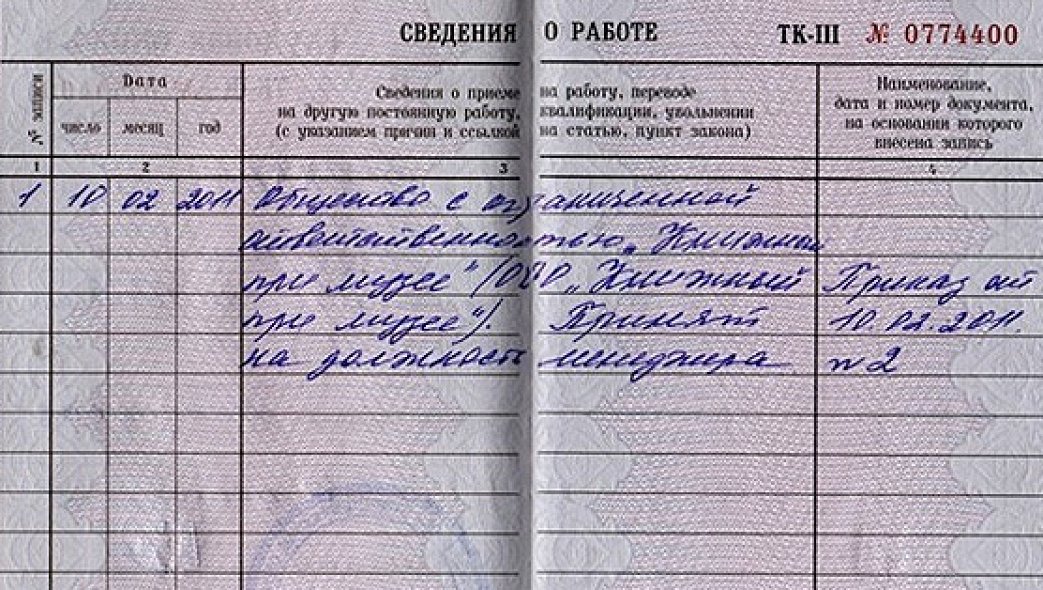 СВЕДЕНИЯ О РАБОТЕ ТК-III № 0774400
№ записи
Дата
число месяц год
Сведения о приеме на работу, переводе
на другую постоянную работу, квалификации, увольнении
(с указанием причин и ссылкой на статью, пункт закона)
Наименование,
дата и номер документа,
на основании которого
внесена запись
1 2 3 4
1 10 02 2011 Общество с ограниченной
ответственностью „Книжный
при музее" (ООО „Книжный Приказ от
при музее"). Принят 10.02.2011.
на должность менеджера № 2